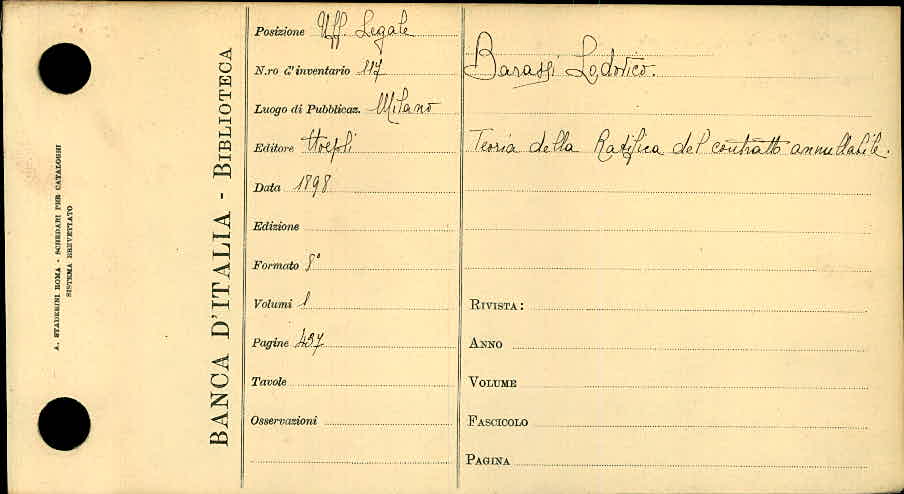 A. STADERINI ROMA - SCHEDARI PER CATALOGHI
SISTEMA BREVETTATO
BANCA D'ITALIA - BIBLIOTECA
Posizione Uff. Legale
N.ro d'inventario 117
Luogo di Pubblicaz. Milano
Editore Hoepli
Data 1898
Edizione
Formato 8°
Volumi 1
Pagine 437
Tavole
Osservazioni
Barassi Lodovico.
Teoria della Ratifica del contratto annullabile.
RIVISTA:
ANNO
VOLUME
FASCICOLO
PAGINA